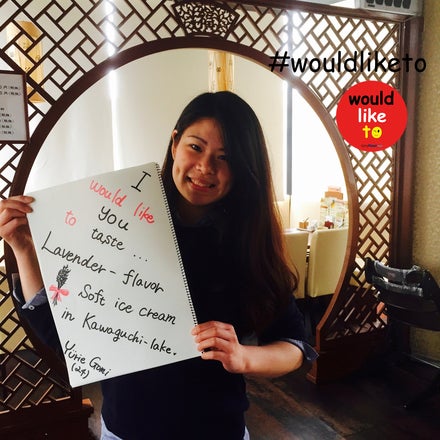 #wouldliketo
would
like
to
I
would like
to you
taste...
Lavender-flavor
Soft ice cream
in Kawaguchi-lake.
Yurie Gomi
(24)